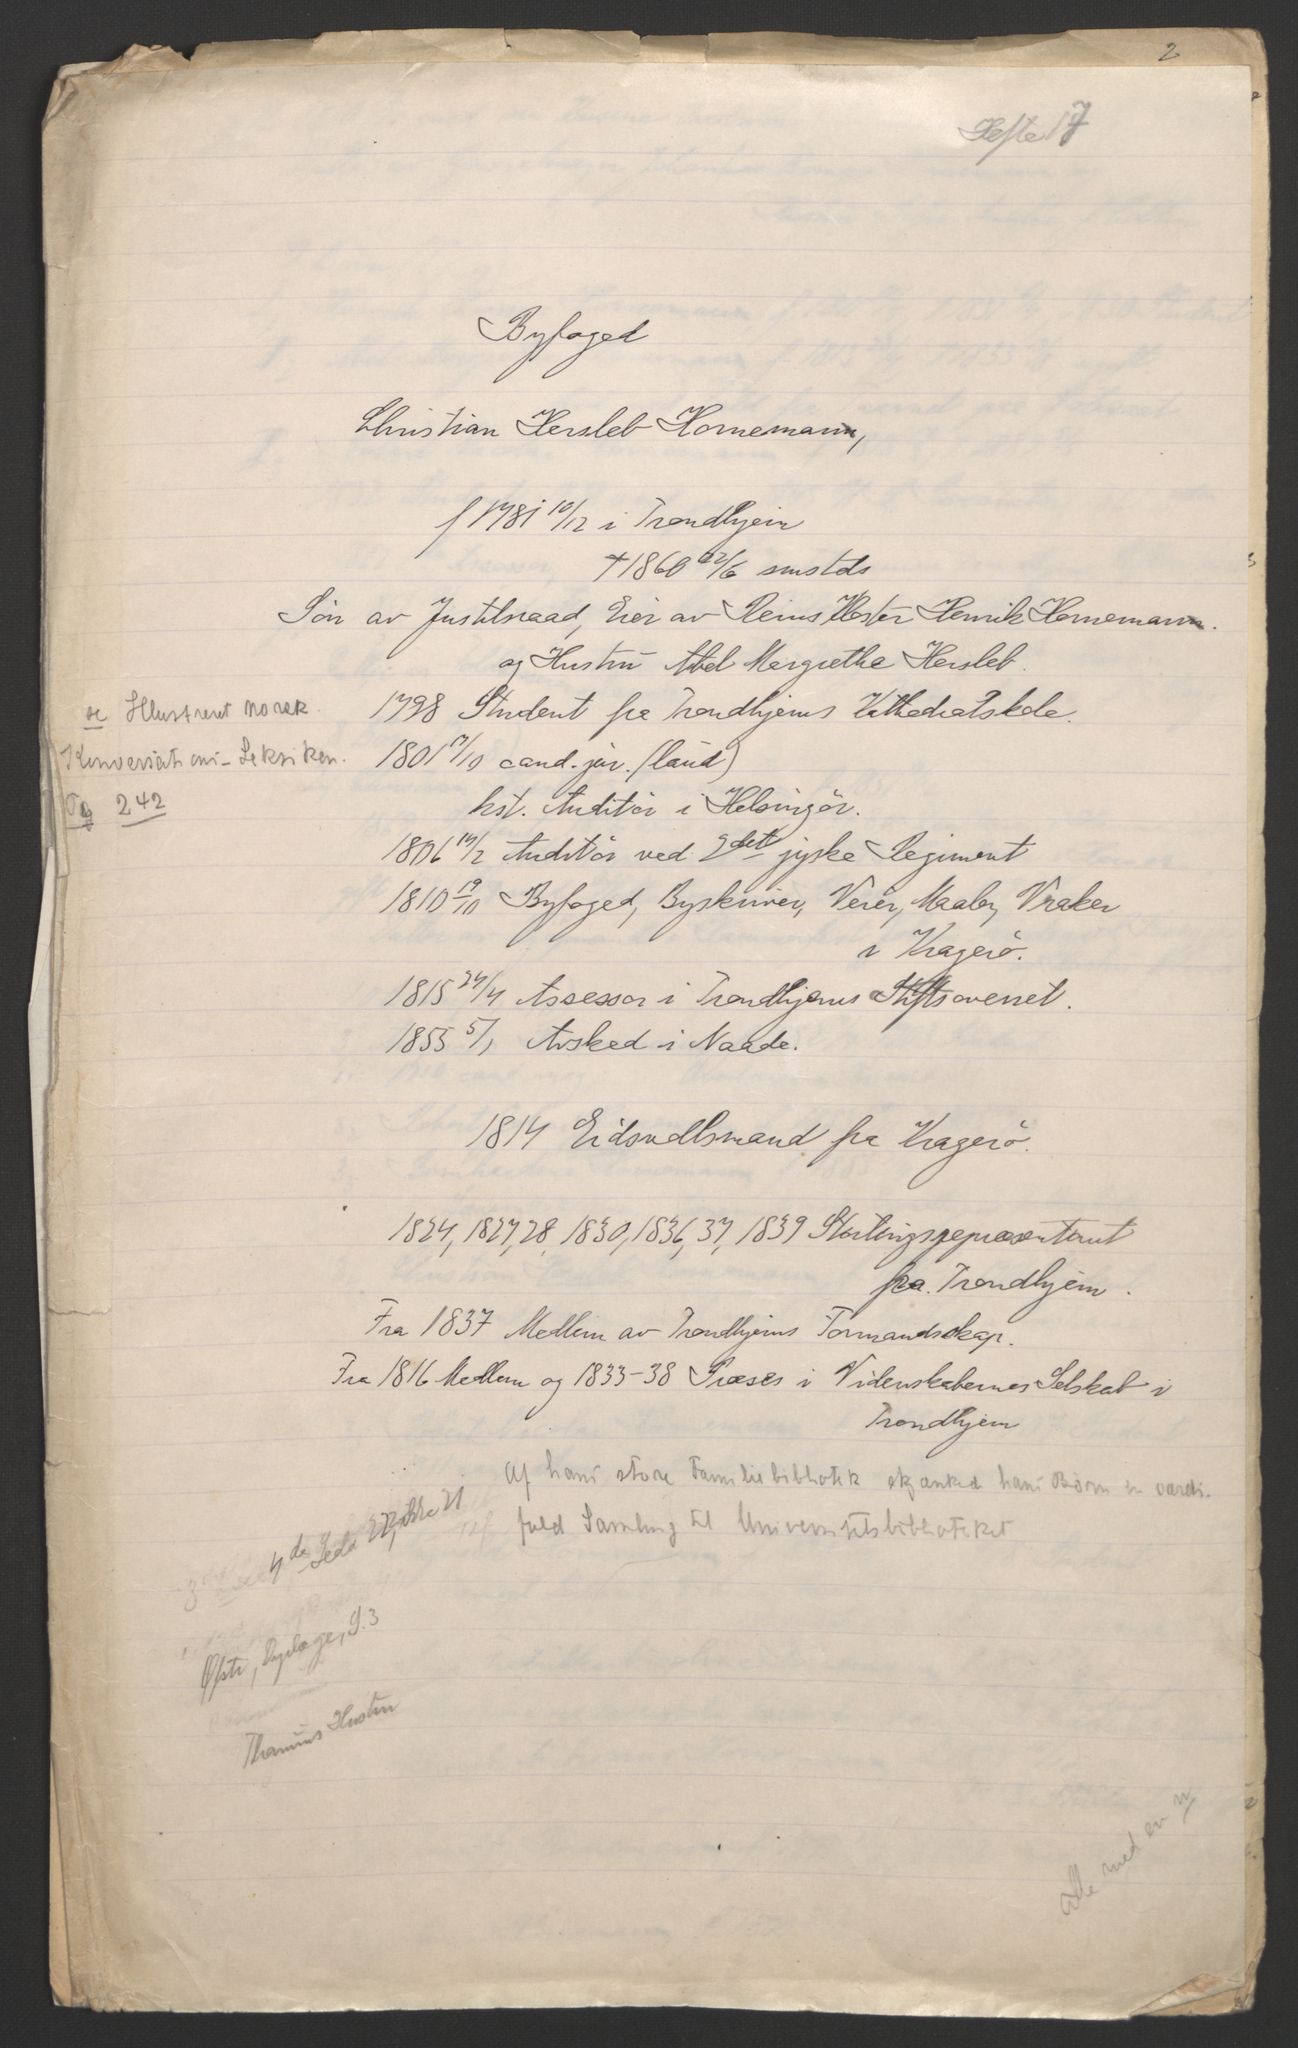 2
Hefte 17
Byfoged
Christian Hersleb Hornemann,
f 1781 10/12 i Trondhjem
† 1860 22/6 smstds
Sön av Justitsraad, Eier av Reins Kloster Henrik Hornemann.
og Hustru Abel Margrethe Hersleb.
se Illustreret norsk
Konversations-Leksikon.
Pg 242
1798 Student fra Trondhjems Kathedralskole.
1801 17/10 cand. jur. (laud)
kst. Auditör i Helsingör.
1806 14/2 Auditör ved 2det jyske Regiment
1810 19/10 Byfoged, Byskriver, Veier, Maaler, Vraker
i Kragerö.
1815 24/4 Assessor i Trondhjems Stiftsoverret.
1855 5/1 Avsked i Naade.
1814 Eidsvollsmand fra Kragerö.
1824, 1827, 28, 1830, 1836, 37, 1839 Stortingsrepræsentant
fra Trondhjem.
Fra 1837 Medlem av Trondhjems Formandskap.
Fra 1816 Medlem og 1833-38 Præses i Videnskabernes Selskab i
Trondhjem
Af hans store Familiebibliotek skjænked hans Börn en værdi-
fuld Samling til Universitetsbiblioteket
4de Side
S. 3
Hustru
alle med en n